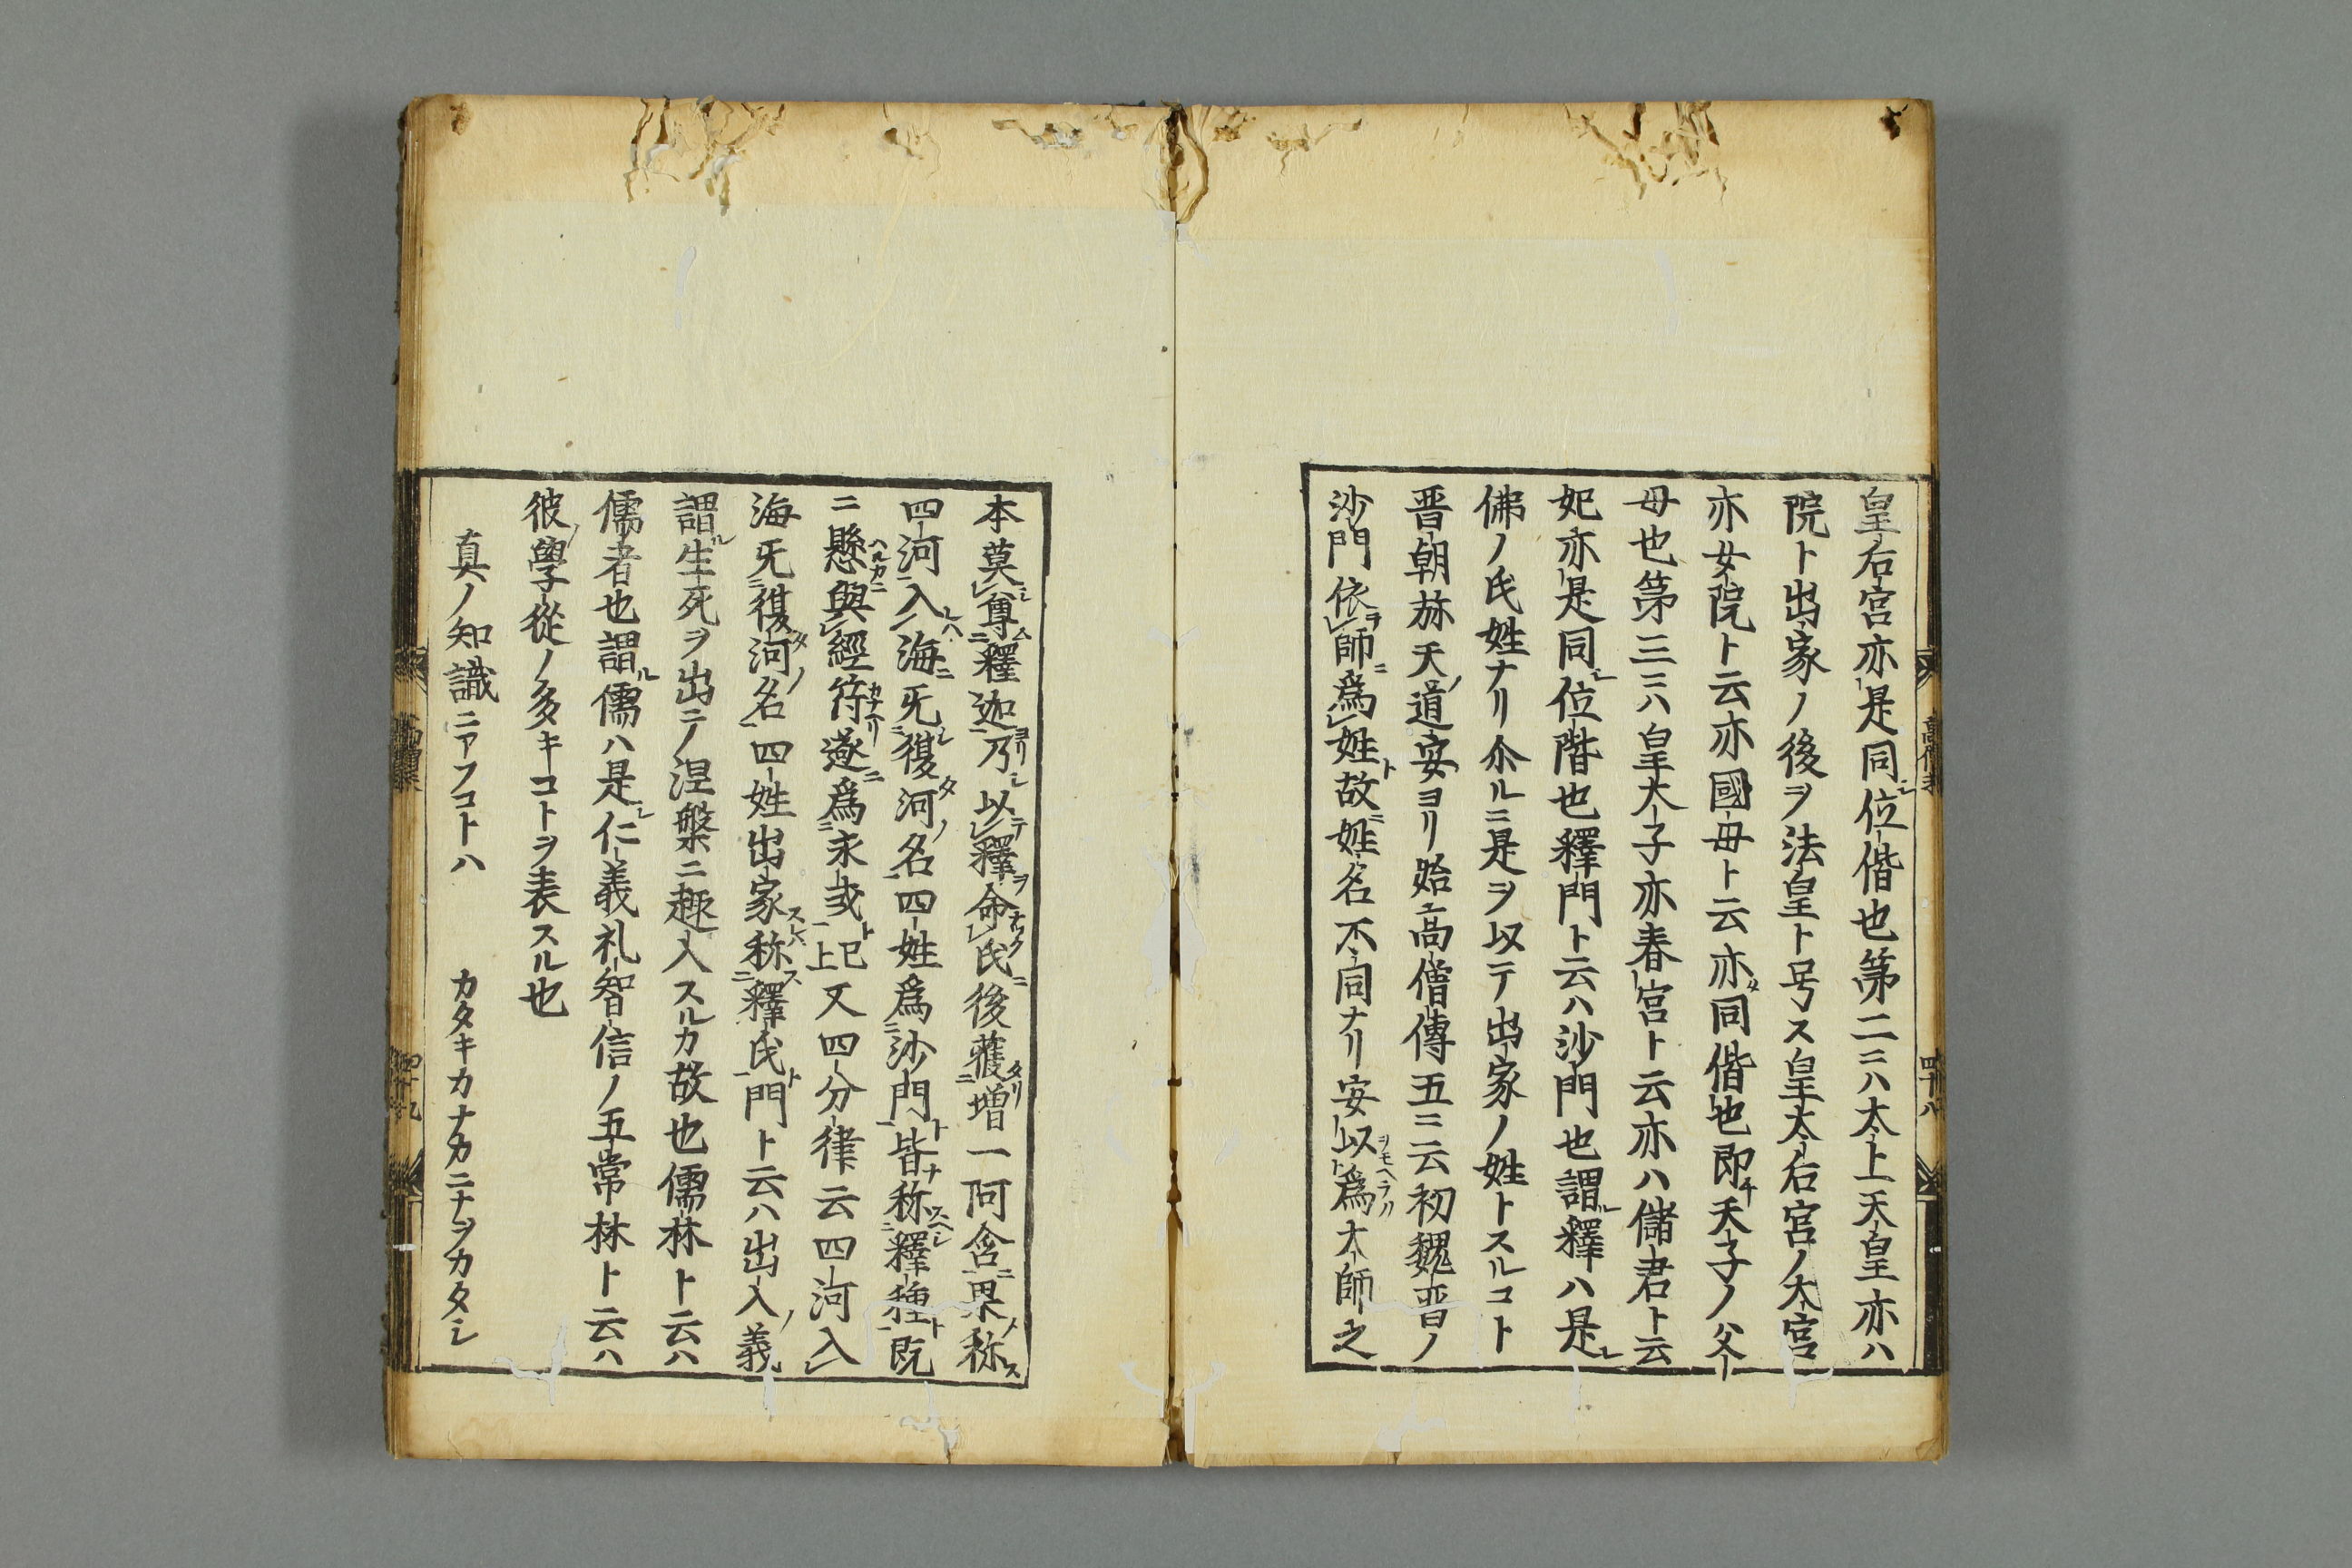 皇后宮亦是同位偕也第二ニハ太上天皇亦ハ
院ト出家ノ後ヲ法皇ト号ス皇太后宮ノ大宮
亦女院ト云亦國母ト云亦同偕也即天子ノ父
母也第三ニハ皇太子亦春宮ト云亦ハ儲君ト云
妃亦是同位階也釋門ト云ハ沙門也謂釋ハ是
佛ノ氏姓ナリ尒ルニ是ヲ以テ出家ノ姓トスルコト
晋朝旅天道安ヨリ始高僧傳五ニ云初魏晋ノ
沙門依師爲姓故姓名不同ナリ安以爲大師之
四十八
本莫尊釋迦乃以釋命氏後獲増一阿含果称
四河入海旡復河名四姓爲沙門皆称釋種既
懸與經符遂爲永或已上又四分律云四河入
海旡復河名四姓出家称釋氏門ト云ハ出入義
謂生死ヲ出テノ涅槃ニ趣入スルカ故也儒林ト云ハ
儒者也謂儒ハ是仁義礼智信ノ五常林ト云ハ
彼學從ノ多キコトヲ表スル也
真ノ知識ニアフコトハ　カタキカナカニナヲカタシ
四十九